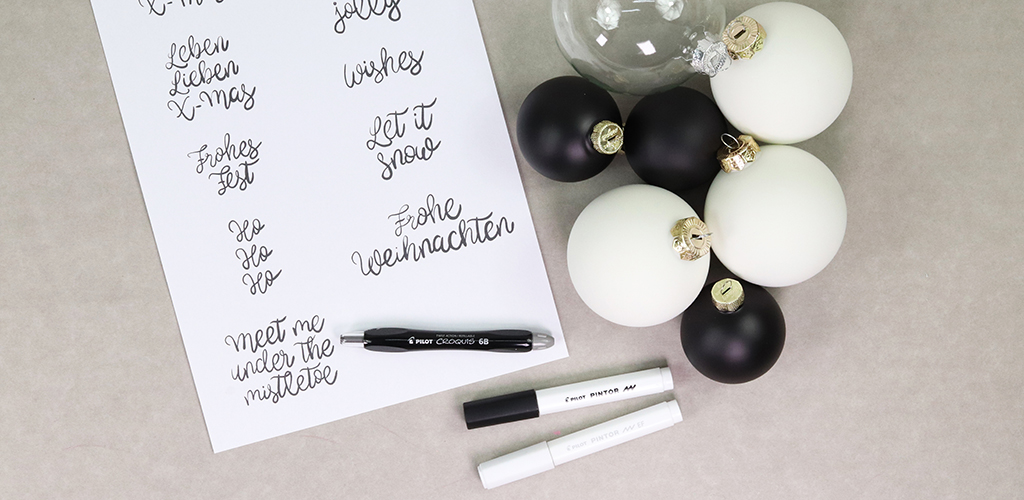 X-mas
Leben
Lieben
X-Mas
Frohes
Fest
Ho
Ho
Ho
meet me
under the
mistletoe
jolly
wishes
Let it
snow
Frohe
Weihnachten
PILOT CROQUIS 6B
PILOT PINTOR M
PILOT PINTOR